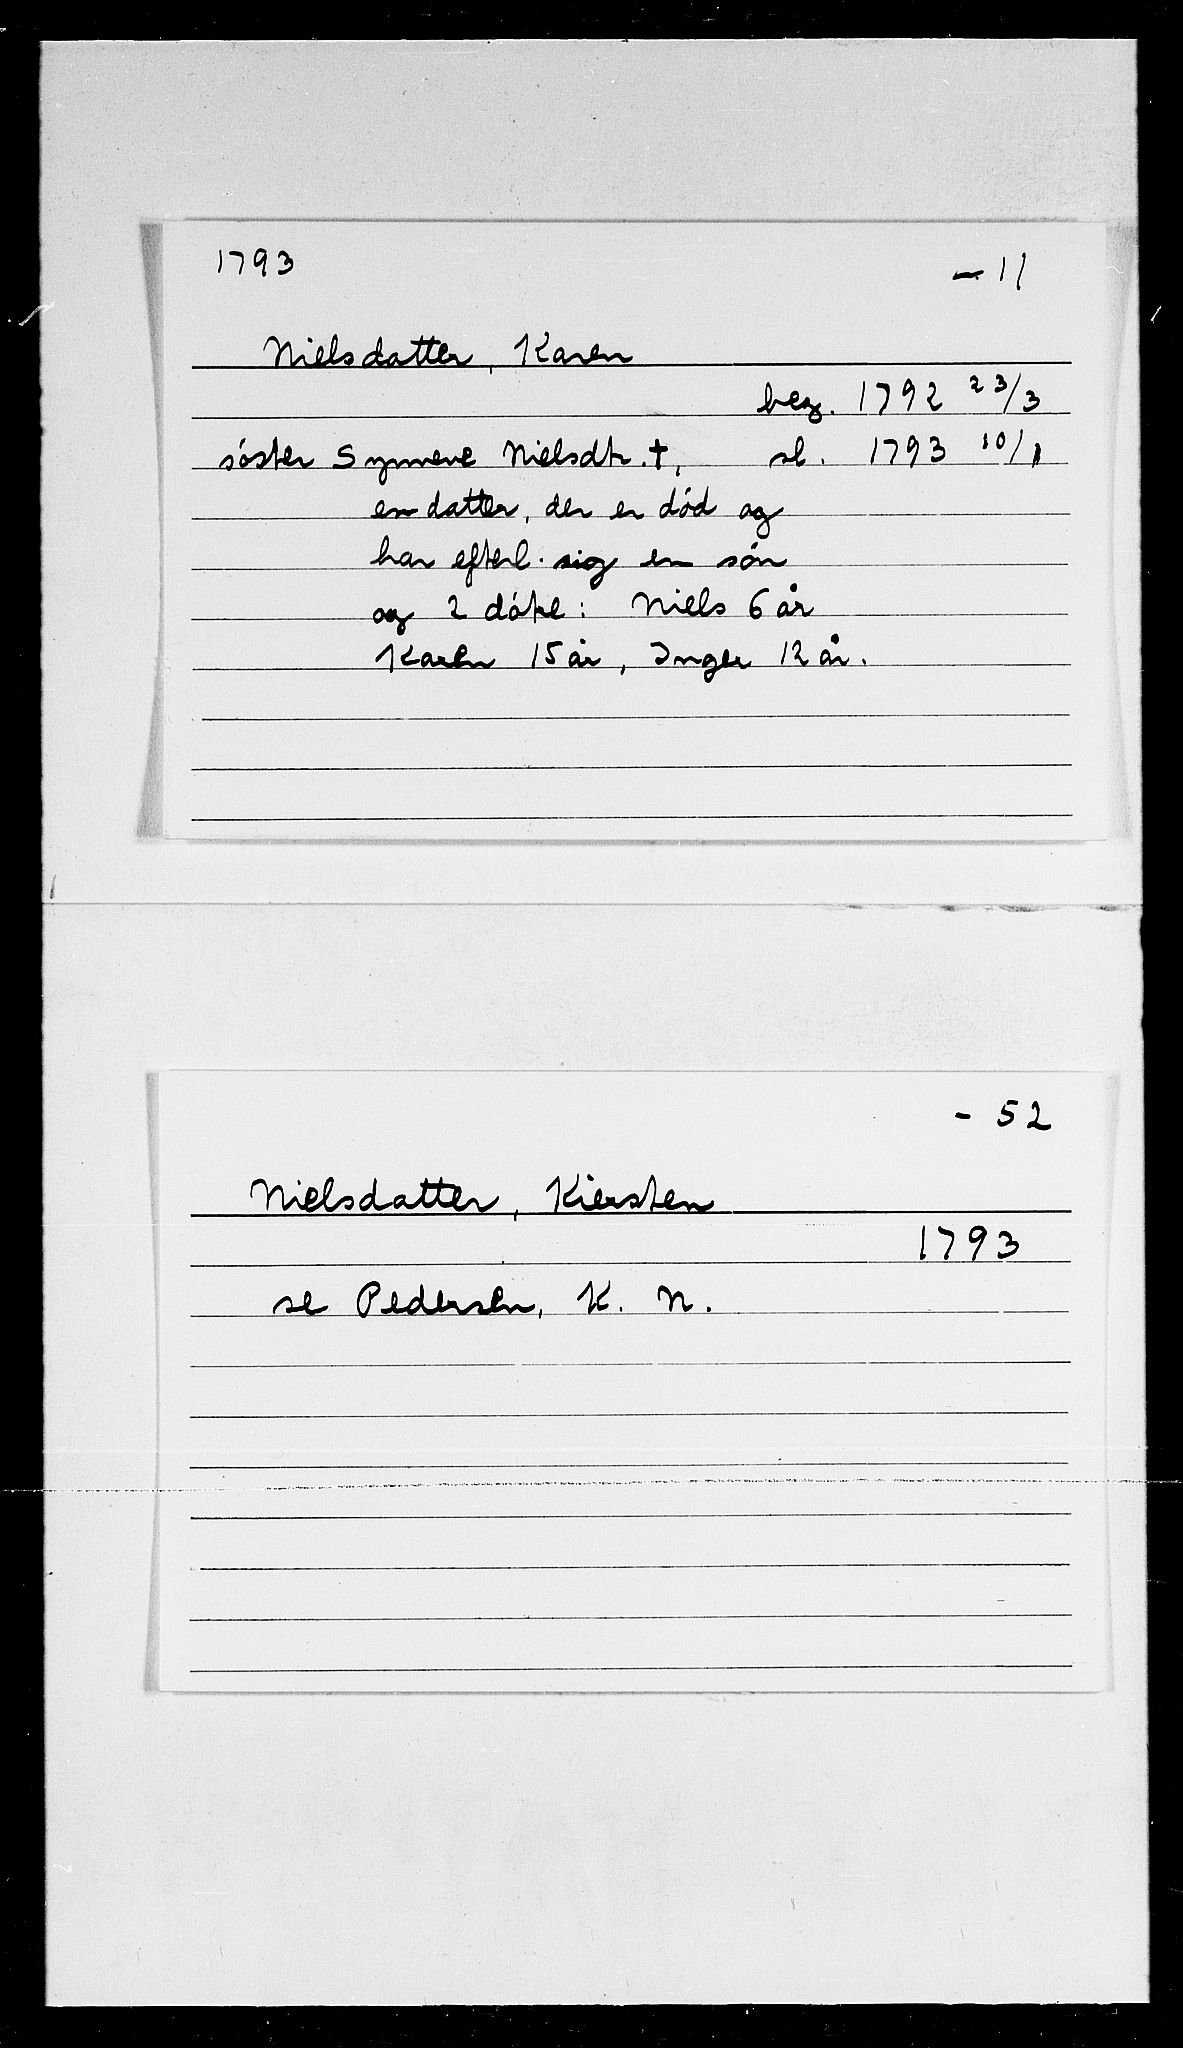 1793 - 11
Nielsdatter, Karen
beg. 1792 23/3
söster Synneve Nielsdtr. †, sl. 1793 10/1
en datter, der er död og
har efterl. sig en sön
og 2 dötre: Niels 6 år
Karen 15 år, Inger 12 år.
- 52
Nielsdatter, Kiersten
1793
se Pedersen, K. N.